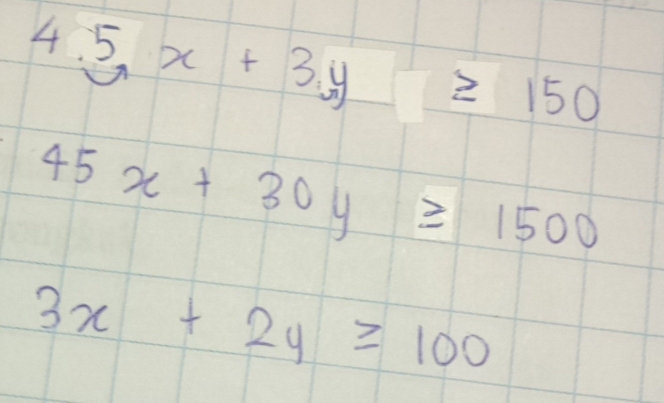 4.5 x + 3.y ≥ 150
45 x + 30 y ≥ 1500
3x + 2y ≥ 100